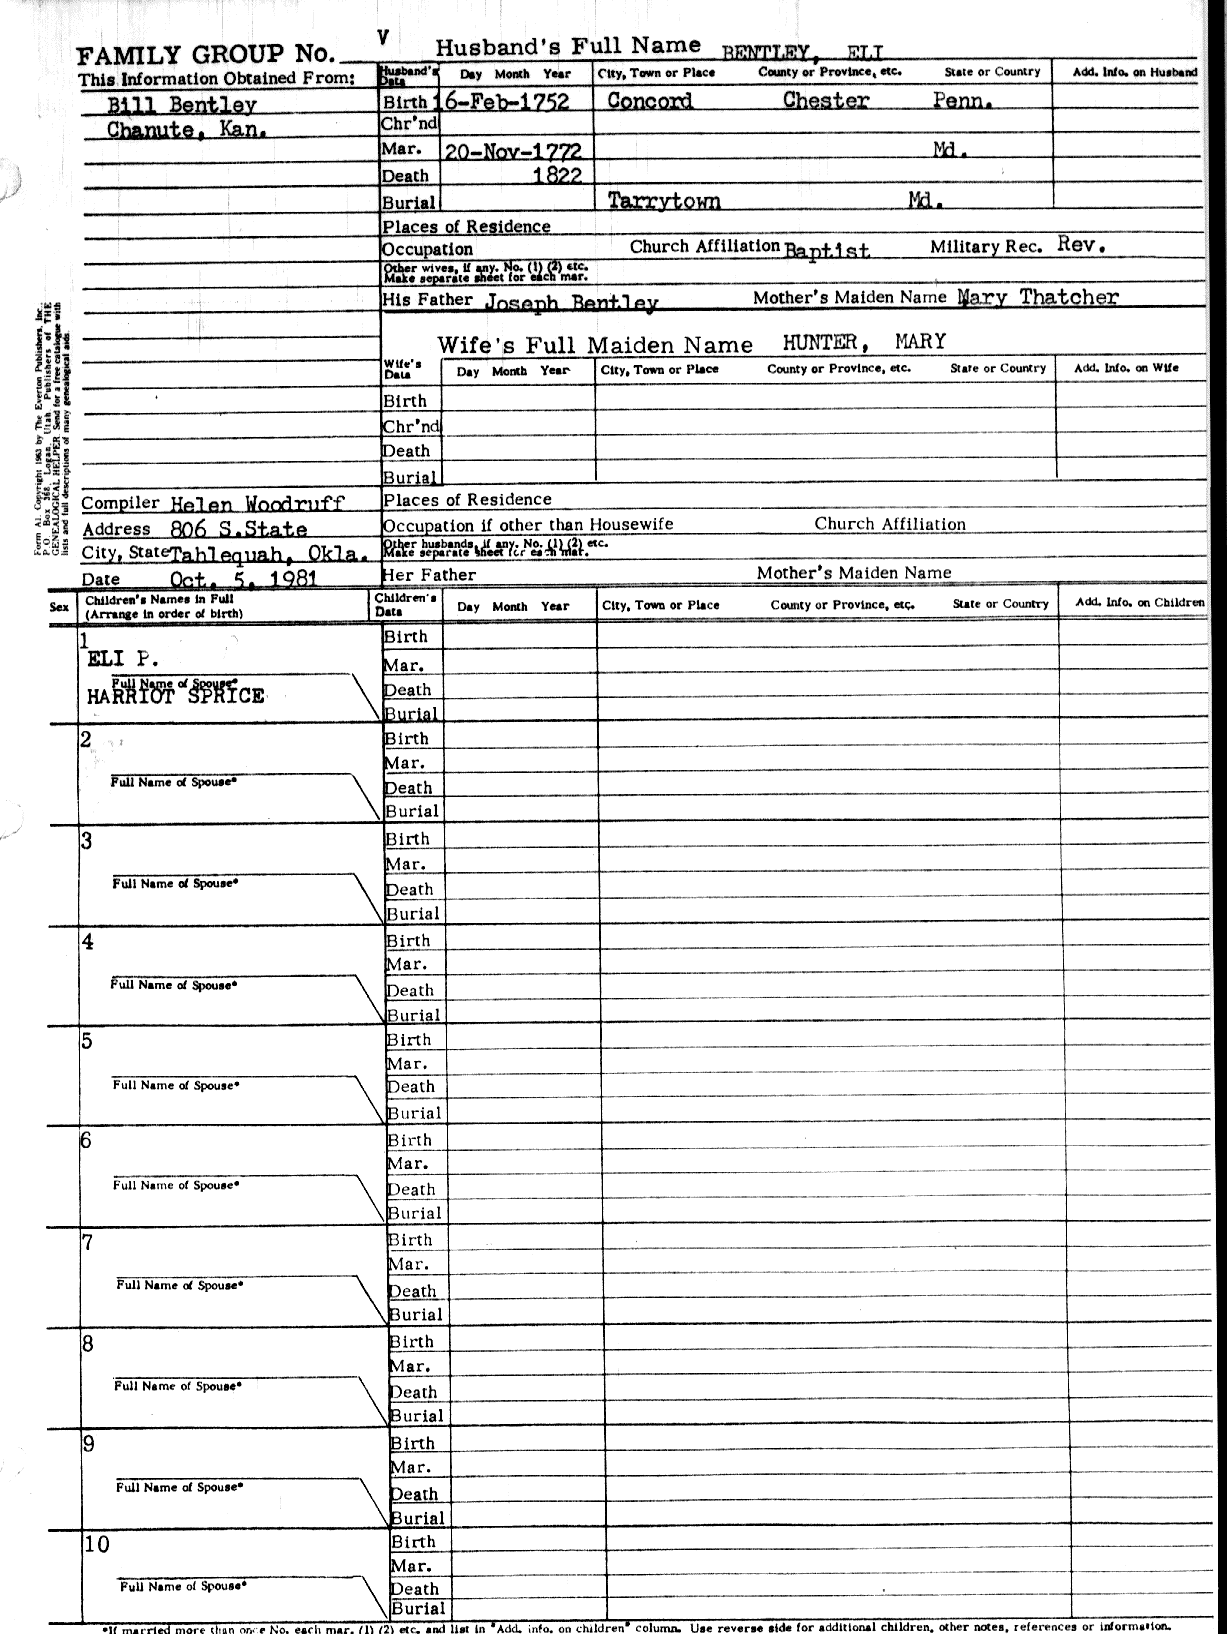 FAMILY GROUP No. V
Husband's Full Name BENTLEY, ELI
This Information Obtained From:
Bill Bentley
Chanute, Kan.
Husband's Data Day Month Year City, Town or Place County or Province, etc. State or Country Add. Info. on Husband
Birth 16-Feb-1752 Concord Chester Penn.
Chr'nd
Mar. 20-Nov-1772 Md.
Death 1822
Burial Tarrytown Md.
Places of Residence
Occupation Church Affiliation Baptist Military Rec. Rev.
Other wives, if any. No. (1) (2) etc.
Make separate sheet for each mar.
His Father Joseph Bentley Mother's Maiden Name Mary Thatcher
Wife's Full Maiden Name HUNTER, MARY
Wife's Data Day Month Year City, Town or Place County or Province, etc. State or Country Add. Info. on Wife
Birth
Chr'nd
Death
Burial
Form A1. Copyright 1963 by The Everton Publishers, Inc.,
P.O. Box 368, Logan, Utah. Publishers of THE
GENEALOGICAL HELPER. Send for a free catalogue with
lists and full descriptions of many genealogical aids.
Compiler Helen Woodruff
Address 806 S.State
City, State Tahlequah, Okla.
Date Oct. 5, 1981
Places of Residence
Occupation if other than Housewife Church Affiliation
Other husbands, if any. No. (1) (2) etc.
Make separate sheet for each mar.
Her Father Mother's Maiden Name
Sex Children's Names in Full
(Arrange in order of birth)
Children's Data Day Month Year City, Town or Place County or Province, etc. State or Country Add. Info. on Children
1
ELI P.
Full Name of Spouse*
HARRIOT SPRICE
Birth
Mar.
Death
Burial
2
Full Name of Spouse*
Birth
Mar.
Death
Burial
3
Full Name of Spouse*
Birth
Mar.
Death
Burial
4
Full Name of Spouse*
Birth
Mar.
Death
Burial
5
Full Name of Spouse*
Birth
Mar.
Death
Burial
6
Full Name of Spouse*
Birth
Mar.
Death
Burial
7
Full Name of Spouse*
Birth
Mar.
Death
Burial
8
Full Name of Spouse*
Birth
Mar.
Death
Burial
9
Full Name of Spouse*
Birth
Mar.
Death
Burial
10
Full Name of Spouse*
Birth
Mar.
Death
Burial
*If married more than once No. each mar. (1) (2) etc. and list in "Add. info. on children" column. Use reverse side for additional children, other notes, references or information.